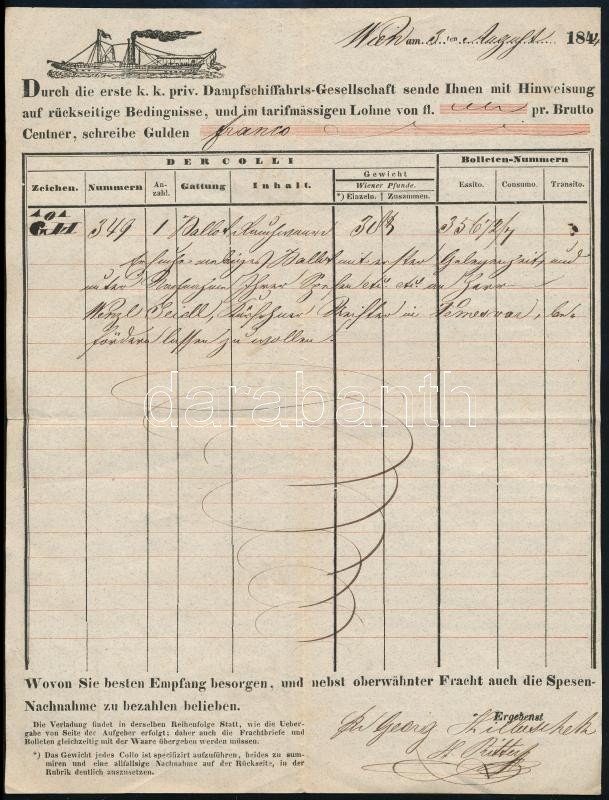 Wien am 3ten August 1844
Durch die erste k. k. priv. Dampfschiffahrts-Gesellschaft sende Ihnen mit Hinweisung
auf rückseitige Bedingnisse, und im tarifmässigen Lohne von fl. pr. Brutto
Centner, schreibe Gulden franco
DER COLLI
Gewicht
Bolleten-Nummern
Zeichen. Nummern An-zahl. Gattung Inhalt. Wiener Pfunde. *) Einzeln. Zusammen. Essito. Consumo. Transito.
349 1 Ballot Rauhwaare
mit erster Gelegenheit und
unter Ihrer Spesen Herr
Wenzl in Temesvar, be-
fördern lassen zu wollen.
darabanth
Wovon Sie besten Empfang besorgen, und nebst oberwähnter Fracht auch die Spesen-
Nachnahme zu bezahlen belieben.
Die Verladung findet in derselben Reihenfolge Statt, wie die Ueber-
gabe von Seite der Aufgeber erfolgt; daher auch die Frachtbriefe und
Bolleten gleichzeitig mit der Waare übergeben werden müssen.
*) Das Gewicht jedes Collo ist specifizirt aufzuführen, beides zu sum-
miren und eine allfällige Nachnahme auf der Rückseite, in der
Rubrik deutlich auszusetzen.
Ergebenst
Georg